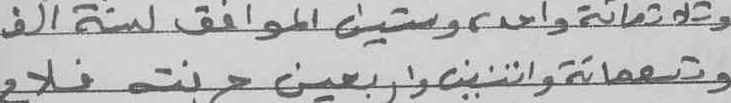 وثلاثمائة واحد وستين الموافق لسنة الف
وتسعمائة واثنين واربعين حزنته فلاح